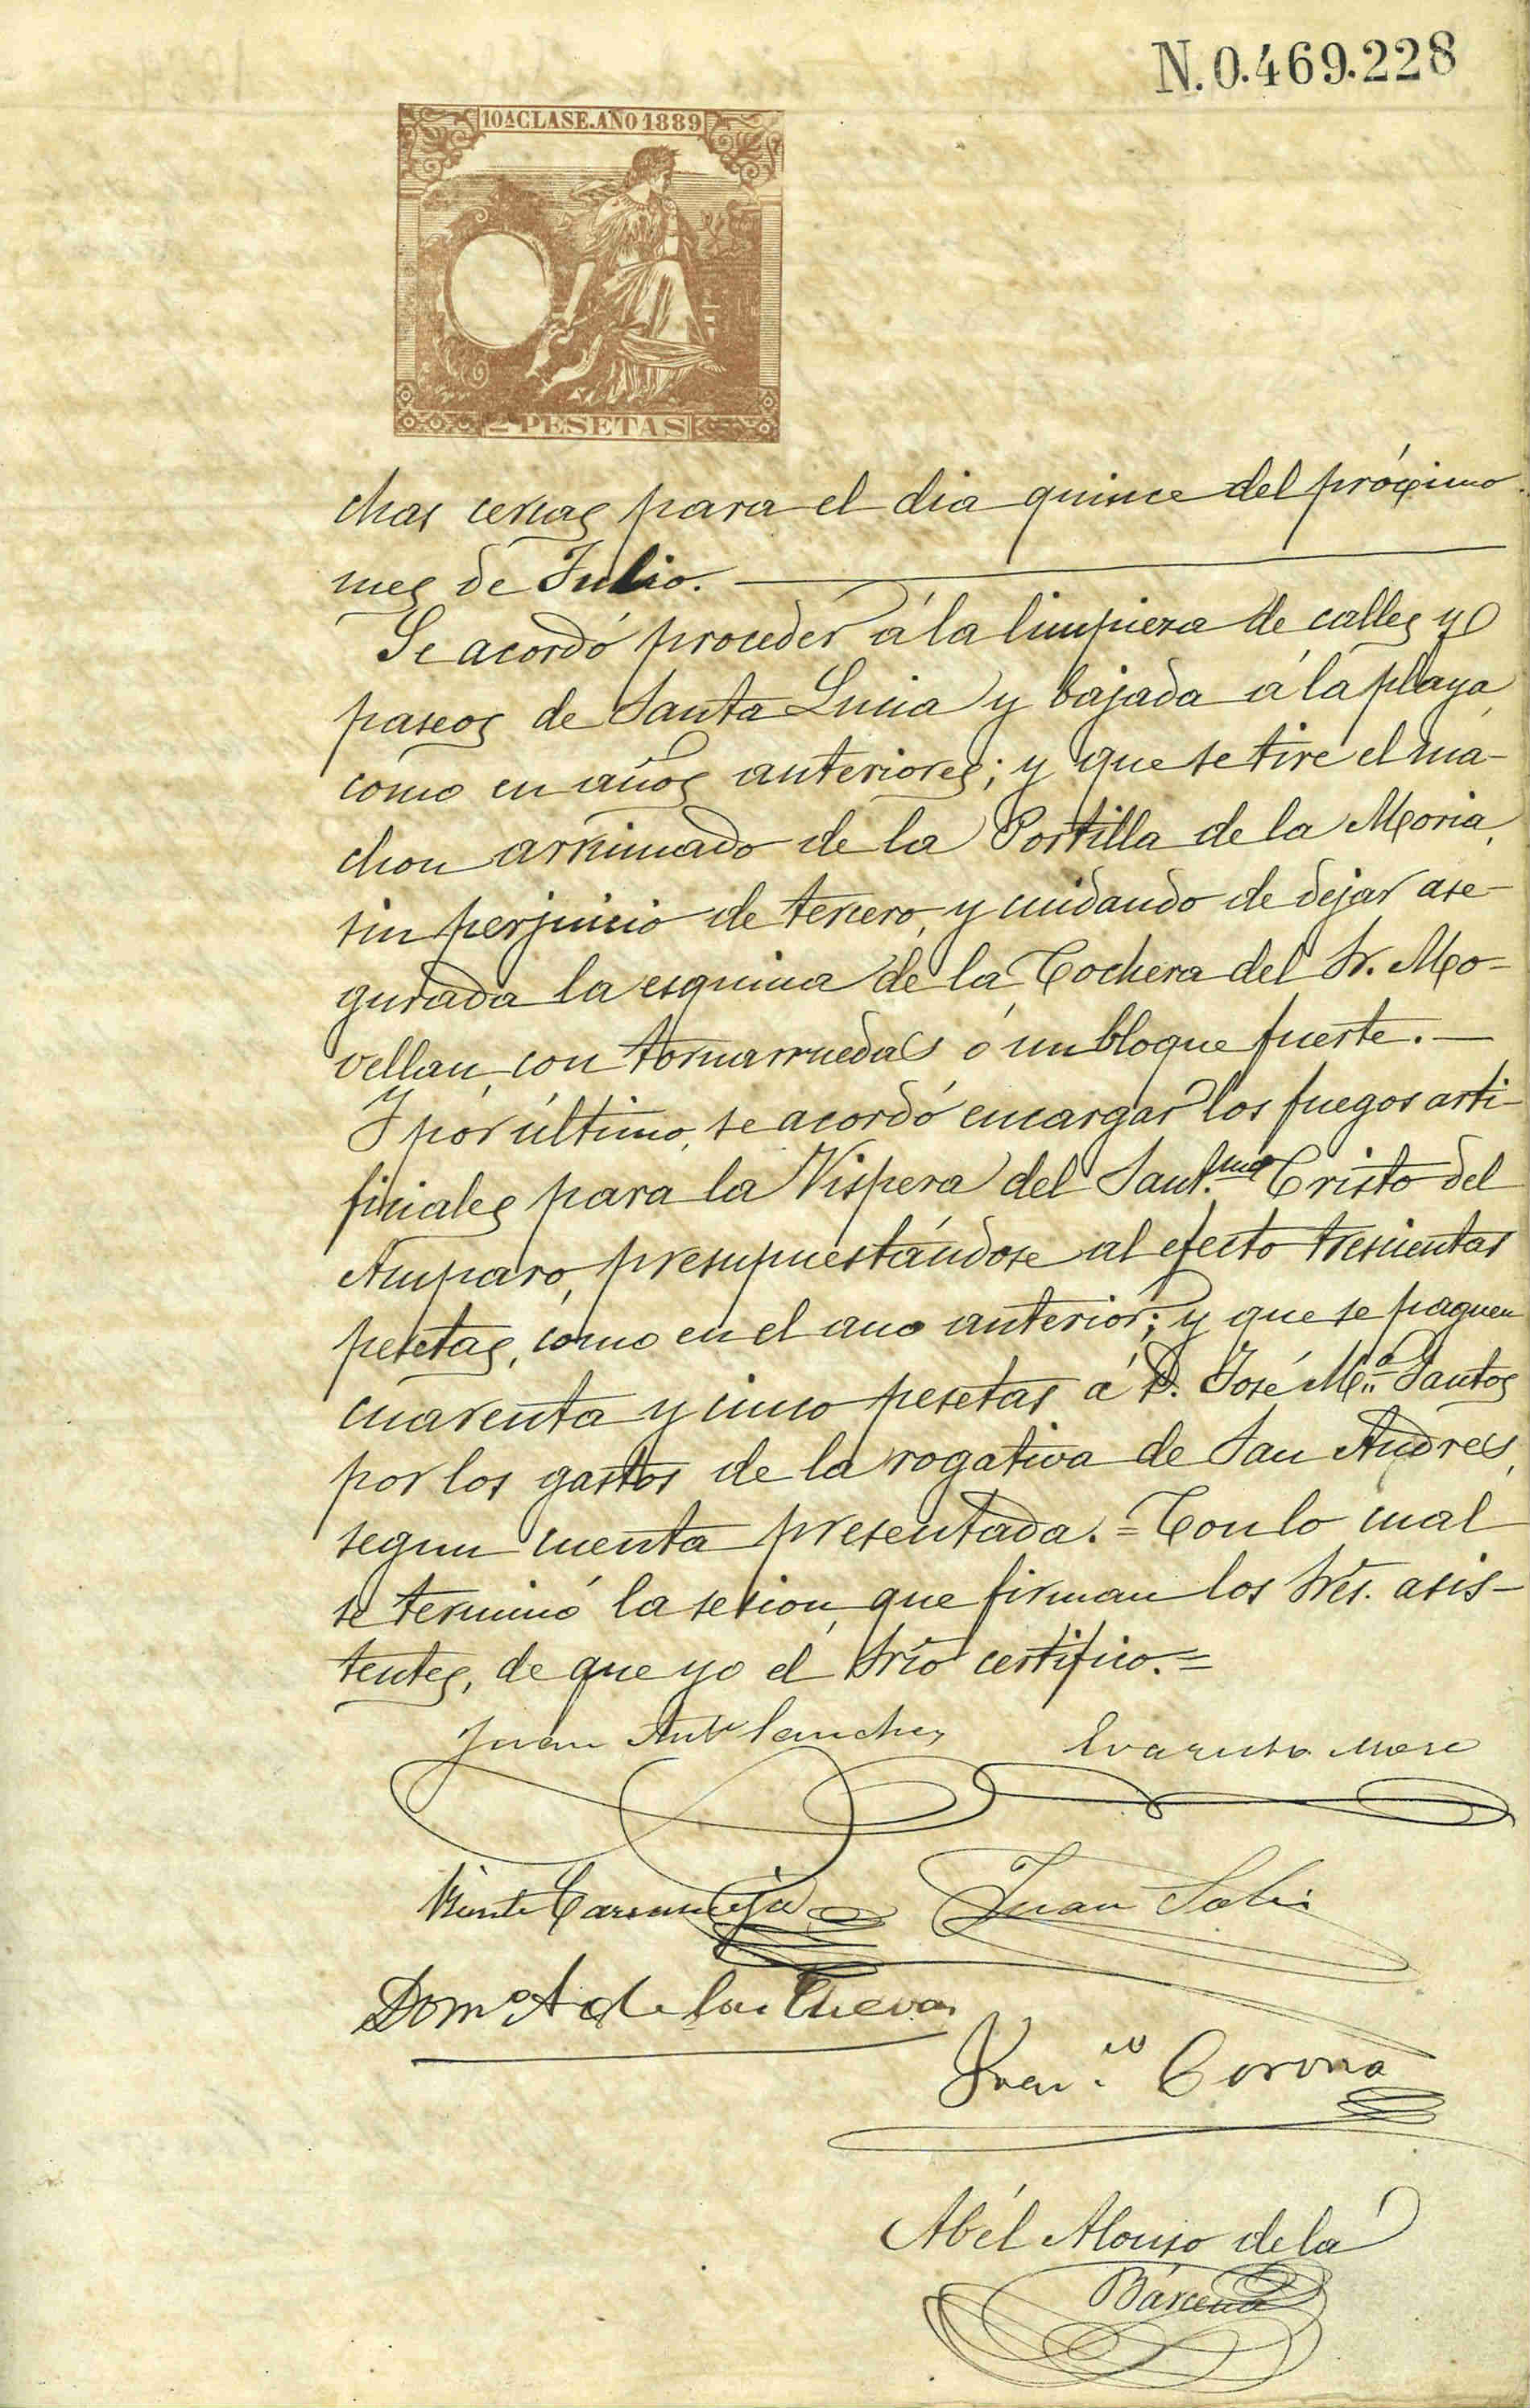 N.0.469.228
10ª CLASE. AÑO 1889
2 PESETAS
chas cercas para el dia quince del próximo
mes de Julio.
Se acordó proceder á la limpieza de calles y
paseos de Santa Lucia y bajada á la playa,
como en años anteriores; y que se tire el ma-
chon arrimado de la Portilla de la Moria,
sin perjuicio de tercero, y cuidando de dejar ase-
gurada la esquina de la Cochera del Sr. Mo-
vellan, con tornarruedas ó un bloque fuerte.—
Y por último, se acordó encargar los fuegos arti-
ficiales para la Vispera del Sant.mo Cristo del
Amparo, presupuestándose al efecto trescientas
pesetas, como en el año anterior; y que se paguen
cuarenta y cinco pesetas á D. José M.ª Santos
por los gastos de la rogativa de San Andres,
segun cuenta presentada.= Con lo cual
se terminó la sesion, que firman los Sres. asis-
tentes, de que yo el Srio certifico.=
Juan Ant.º Sanchez Evaristo
Juan
Dom.º A de las Cuevas
Fran.co Corona
Abél Alonso de la
Bárcena